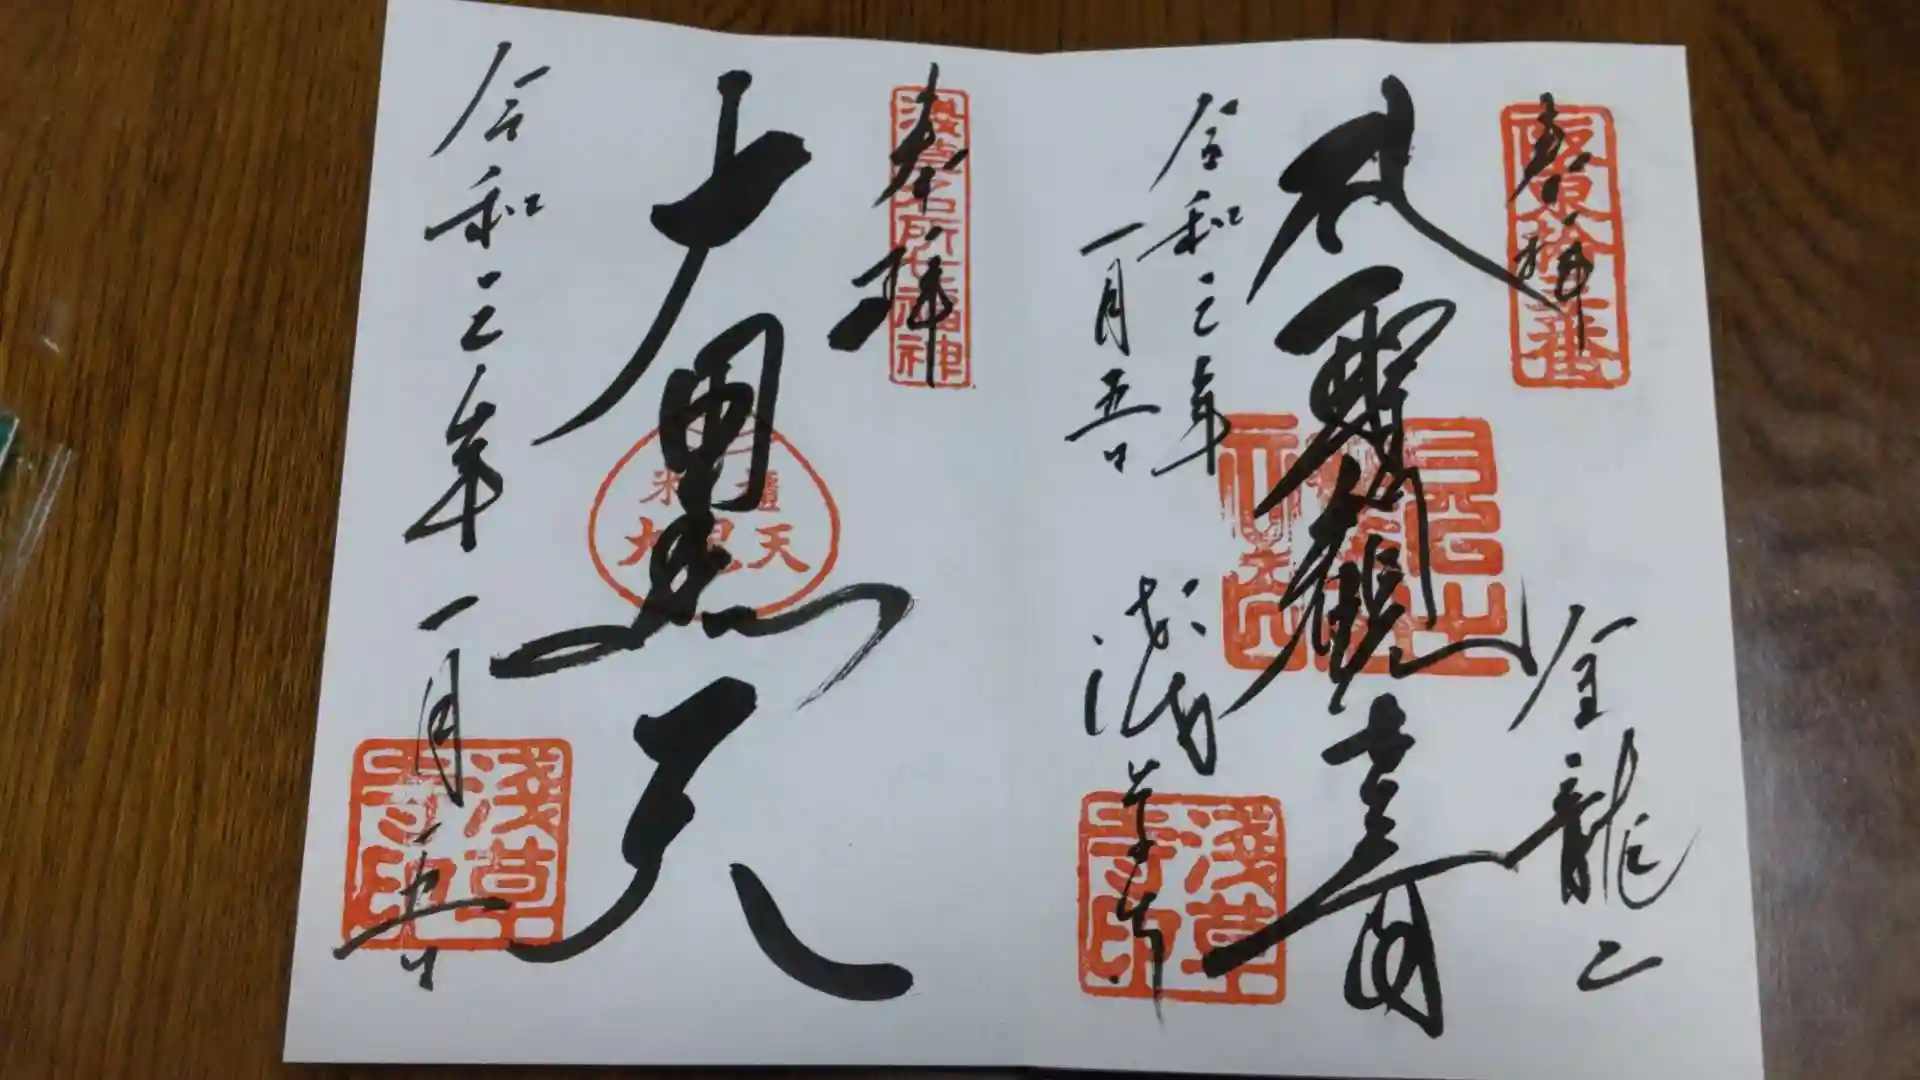 奉拝
坂東拾三番
金龍山
聖観世音
令和三年
一月五日
浅草寺
淺草寺印
奉拝
浅草名所七福神
大黒天
米櫃
大黒天
令和三年一月五日
淺草寺印